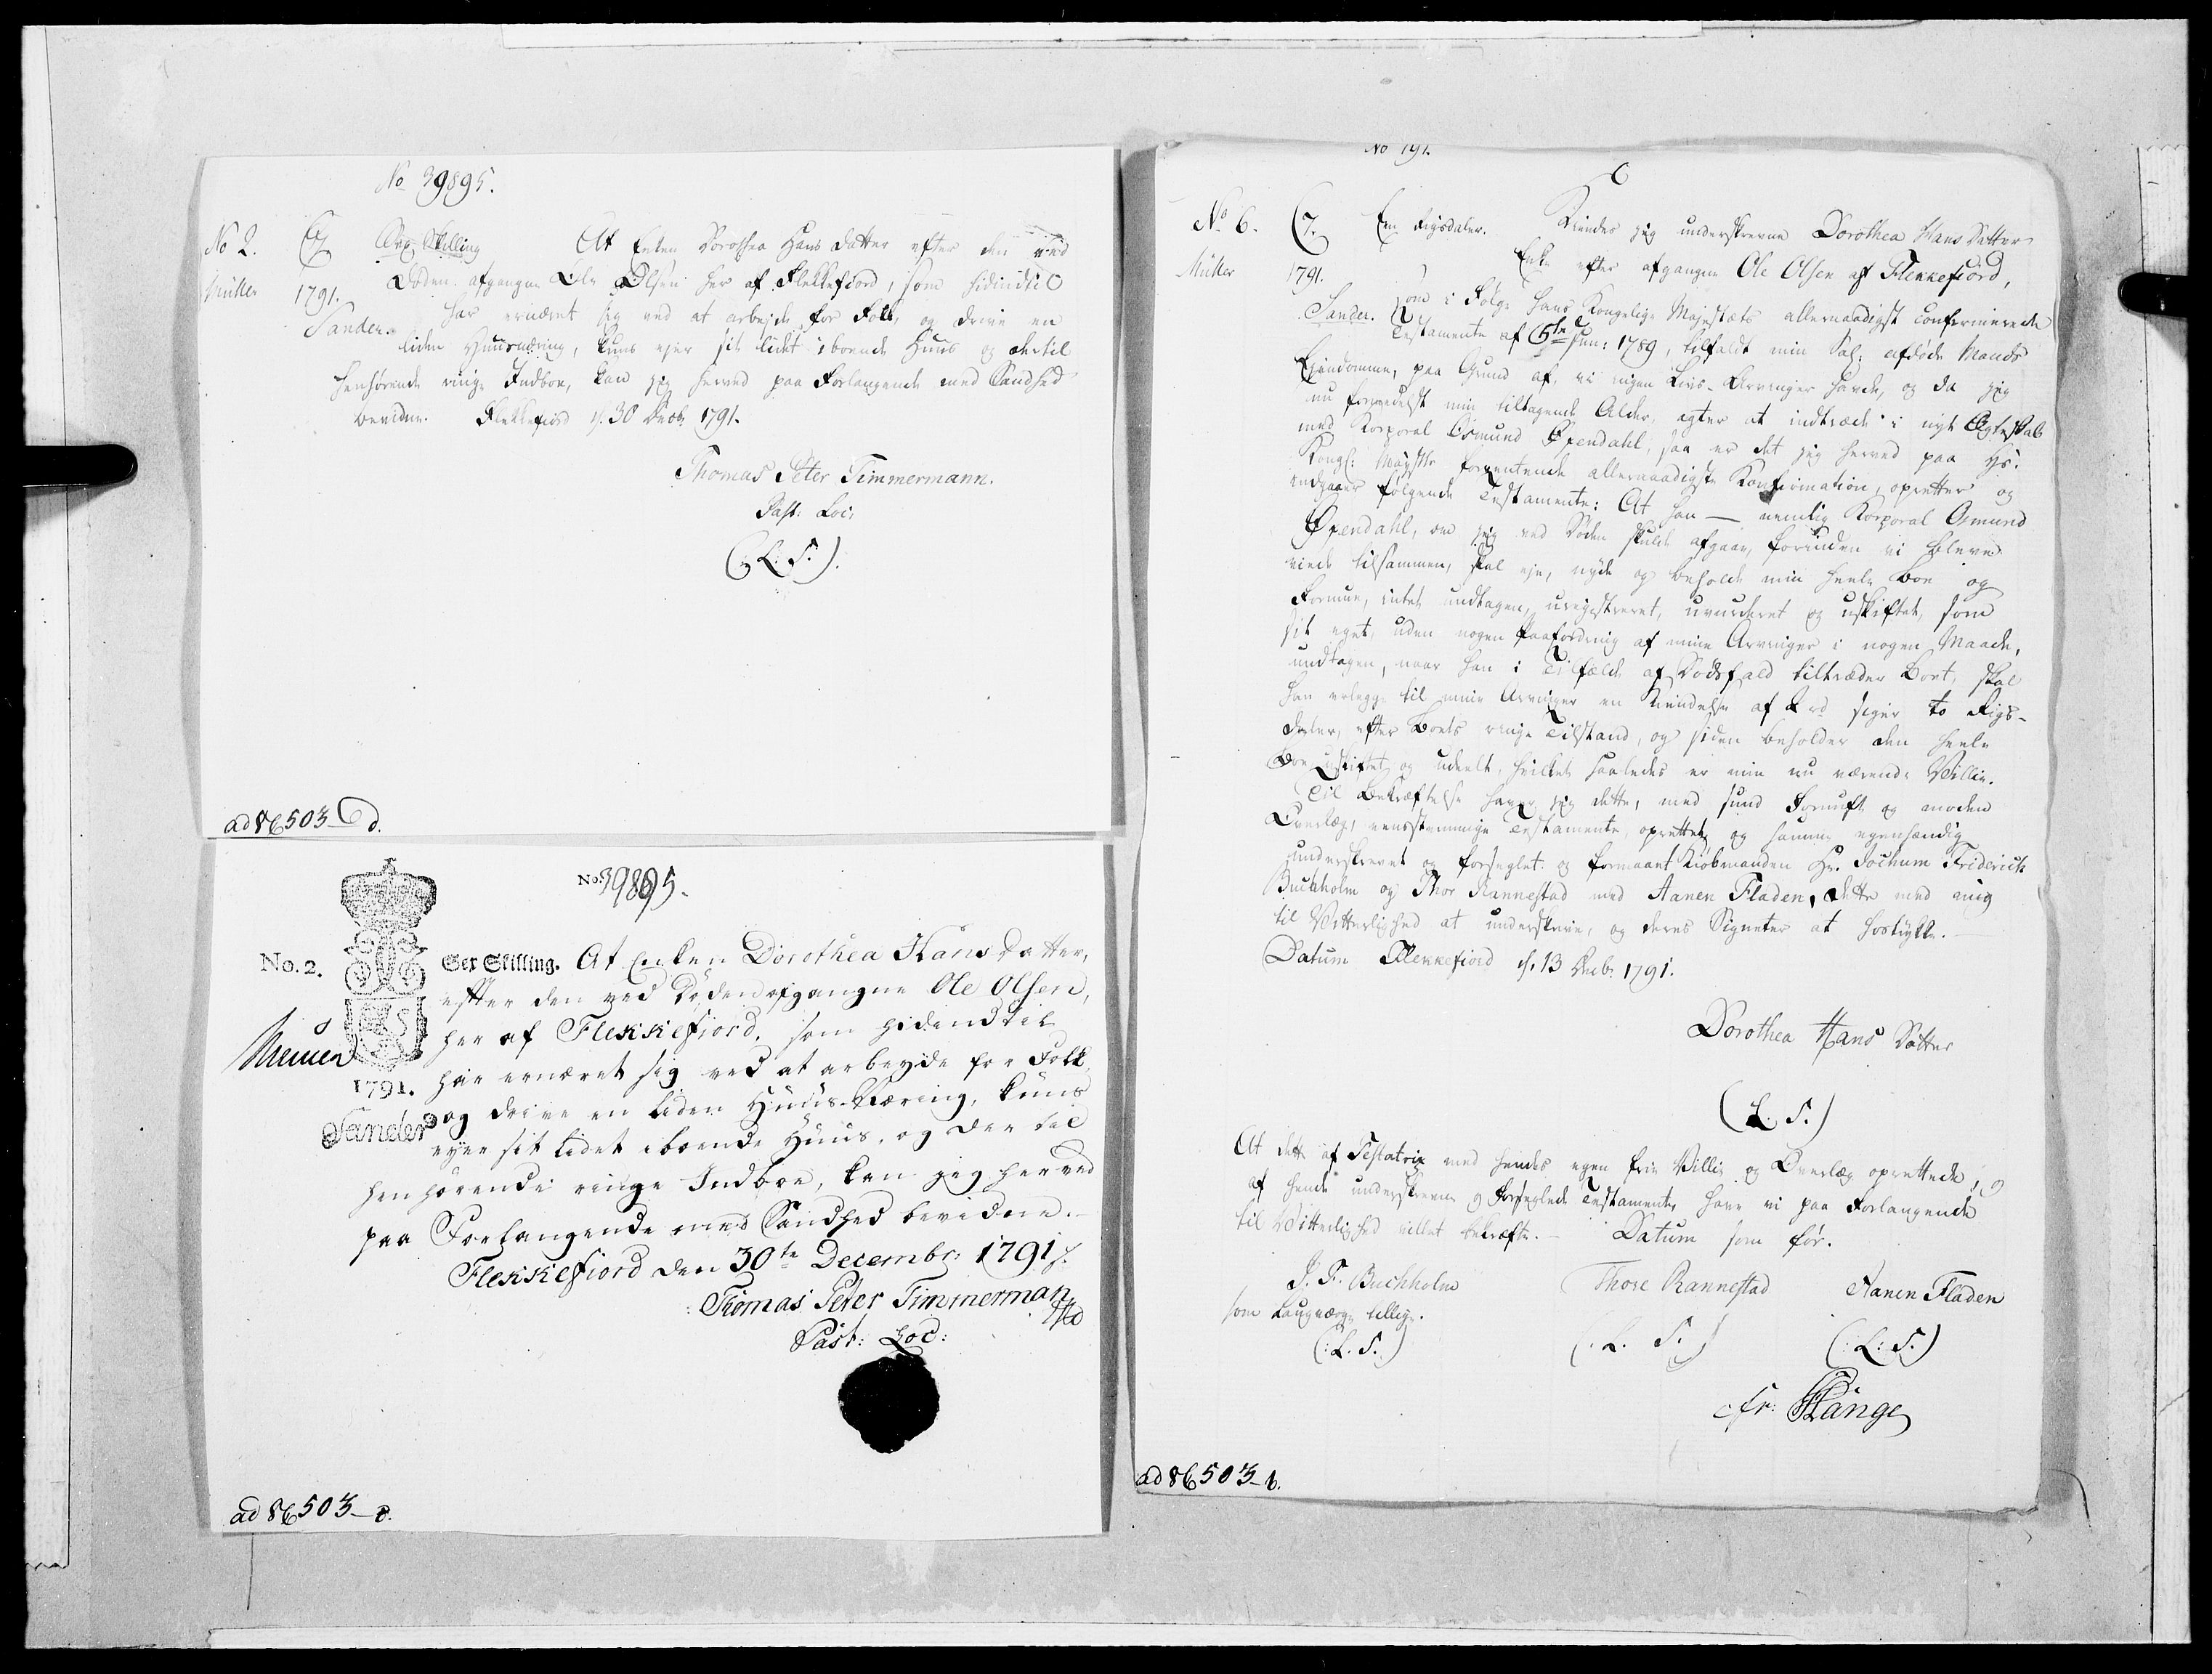 No 39895.
No 2. C7. Sex Skilling At Enken Dorothea Hans Datter efter den ved
Müller 1791. Døden afgangne Ole Olsen her af Flekkefiord, som hidindtil
Sander. har ernæret sig ved at arbejde for Folk, og drive en
liden Huusnæring, kuns ejer sit lidet iboende Huus og dertil
henhørende ringe Indboe, kan jeg herved paa Forlangende med Sandhed
bevidne. Flekkefiord d. 30 Decb. 1791.
Thomas Peter Timmermann.
Past: Loci
(: L. S.).
ad 86503 d.
No. 39895.
No. 2. Sex Skilling. At Enken Dorothea Hans Datter,
efter den ved Døden afgangne Ole Olsen,
her af Flekkefiord, som hidindtil
1791. har ernæret sig ved at arbeyde for Folk
Sander og drive en liden Huus-Næring, kuns
eyer sit lidet iboende Huus, og der til
henhørende ringe Indboe, kan jeg herved
paa Forlangende med Sandhed bevidne.
Flekkefiord den 30te Decembr: 1791.
Thomas Peter Timmerman
Past: Loc:
ad 86503-
No 191.
No 6. C7. En Rigsdaler. Kiendes jeg underskrevne Dorothea Hans Datter
Müller 1791. Enke efter afgangne Ole Olsen af Flekkefiord,
Sander. som i Følge Hans Kongelige Majestæts allernaadigst confirmerede
Testamente af 5te Jun: 1789, tilfaldt min Sal: afdøde Mands
Ejendomme, paa Grund af, vi ingen Livs-Arvinger havde, og da jeg
nu formedelst min tiltagende Alder, agter at indtræde i nyt Ægteskab
med Korporal Osmund Øxendahl, saa er det jeg herved paa Hs:
Kongl: Mayst: forventende allernaadigste Konfirmation, opretter og
indgaaer følgende Testamente: At han — nemlig Korporal Osmund
Øxendahl, om jeg ved Døden skulde afgaae, forinden vi bleve
viede tilsammen, skal eje, nyde og beholde min heele Boe og
Formue, intet undtagen, uregistreret, uvurderet og uskiftet, som
sit eget, uden nogen Paafordring af mine Arvinger i nogen Maade,
undtagen, naar han i Tilfælde af Dødsfald tiltræder Boet, skal
han erlegge til mine Arvinger en Kiendelse af 2 rd siger to Rigs-
daler, efter Boets ringe Tilstand, og siden beholder den heele
Boe uskiftet og udeelt, hvilket saaledes er min nu værende Villie.
Til Bekræftelse haver jeg dette, med sund Fornuft og moden
Overlæg, eensstemmige Testamente, oprettet og samme egenhændig
underskrevet og forseglet og formaaet Kiøbmanden Hr. Jochum Friderich
Buchholm og Thor Rannestad med Aanen Fladen, dette med mig
til Vitterlighed at underskrive, og deres Signeter at hostrykke.
Datum Flekkefiord d. 13 Decb: 1791.
Dorothea Hans Datter
(L. S.)
At dette af Testatrix med hendes egen frie Villie og Overlæg oprettede, og
af hende underskrevne og forseglede Testamente, have vi paa Forlangende
til Vitterlighed villet bekræfte. – Datum som før.
J. F. Buchholm Thore Rannestad Aanen Fladen
som Laugværge tillige.
(: L. S.) (: L. S.) (: L: S.)
ad 86503-b.